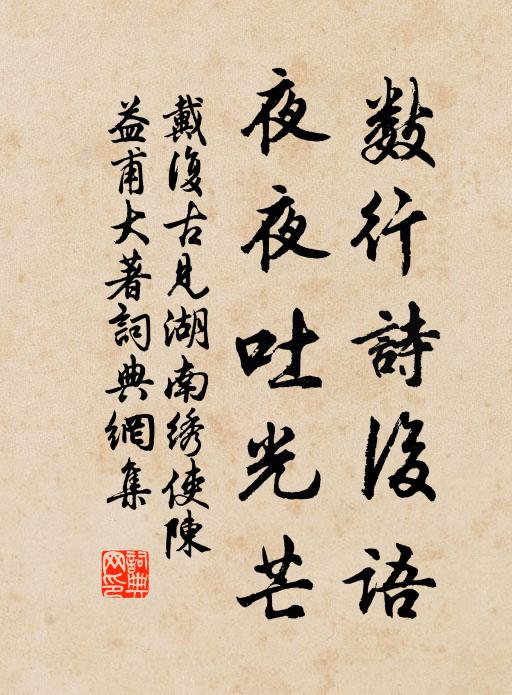 数行詩後語
夜夜吐光芒
戴復古見湖南绣使陳
益甫大著詞典網集
詞典网印